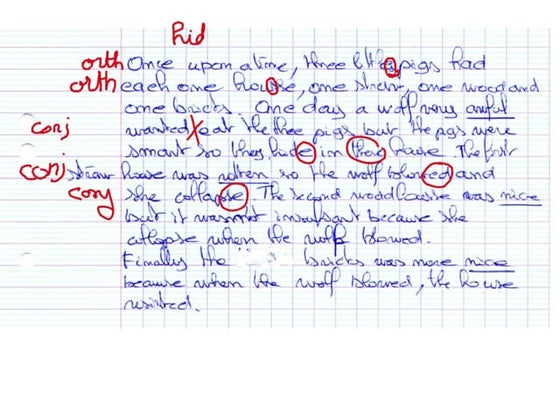 hid
orth Once upon a time, three little pigs had
orth each one house, one straw, one wood and
one bricks. One day a wolf very awful
conj wanted eat the three pigs but the pigs were
smart so they hide in they house. The first
conj straw house was when so the wolf blowed and
conj she collapse. The second wood house was nice
but it wasnt because she
collapse when the wolf blowed.
Finally the bricks was more nice
because when the wolf blowed, the house
resisted.